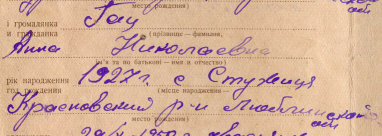 место рождения)
і громадянка Гац
и гражданка (прізвище — фамилия,
Анна Николаевна
ім'я та по батькові — имя и отчество)
рік народження 1927 г. с Стужиця
год рождения (місце народження —
Красновский р-н Люблинской
обл
место рождения)